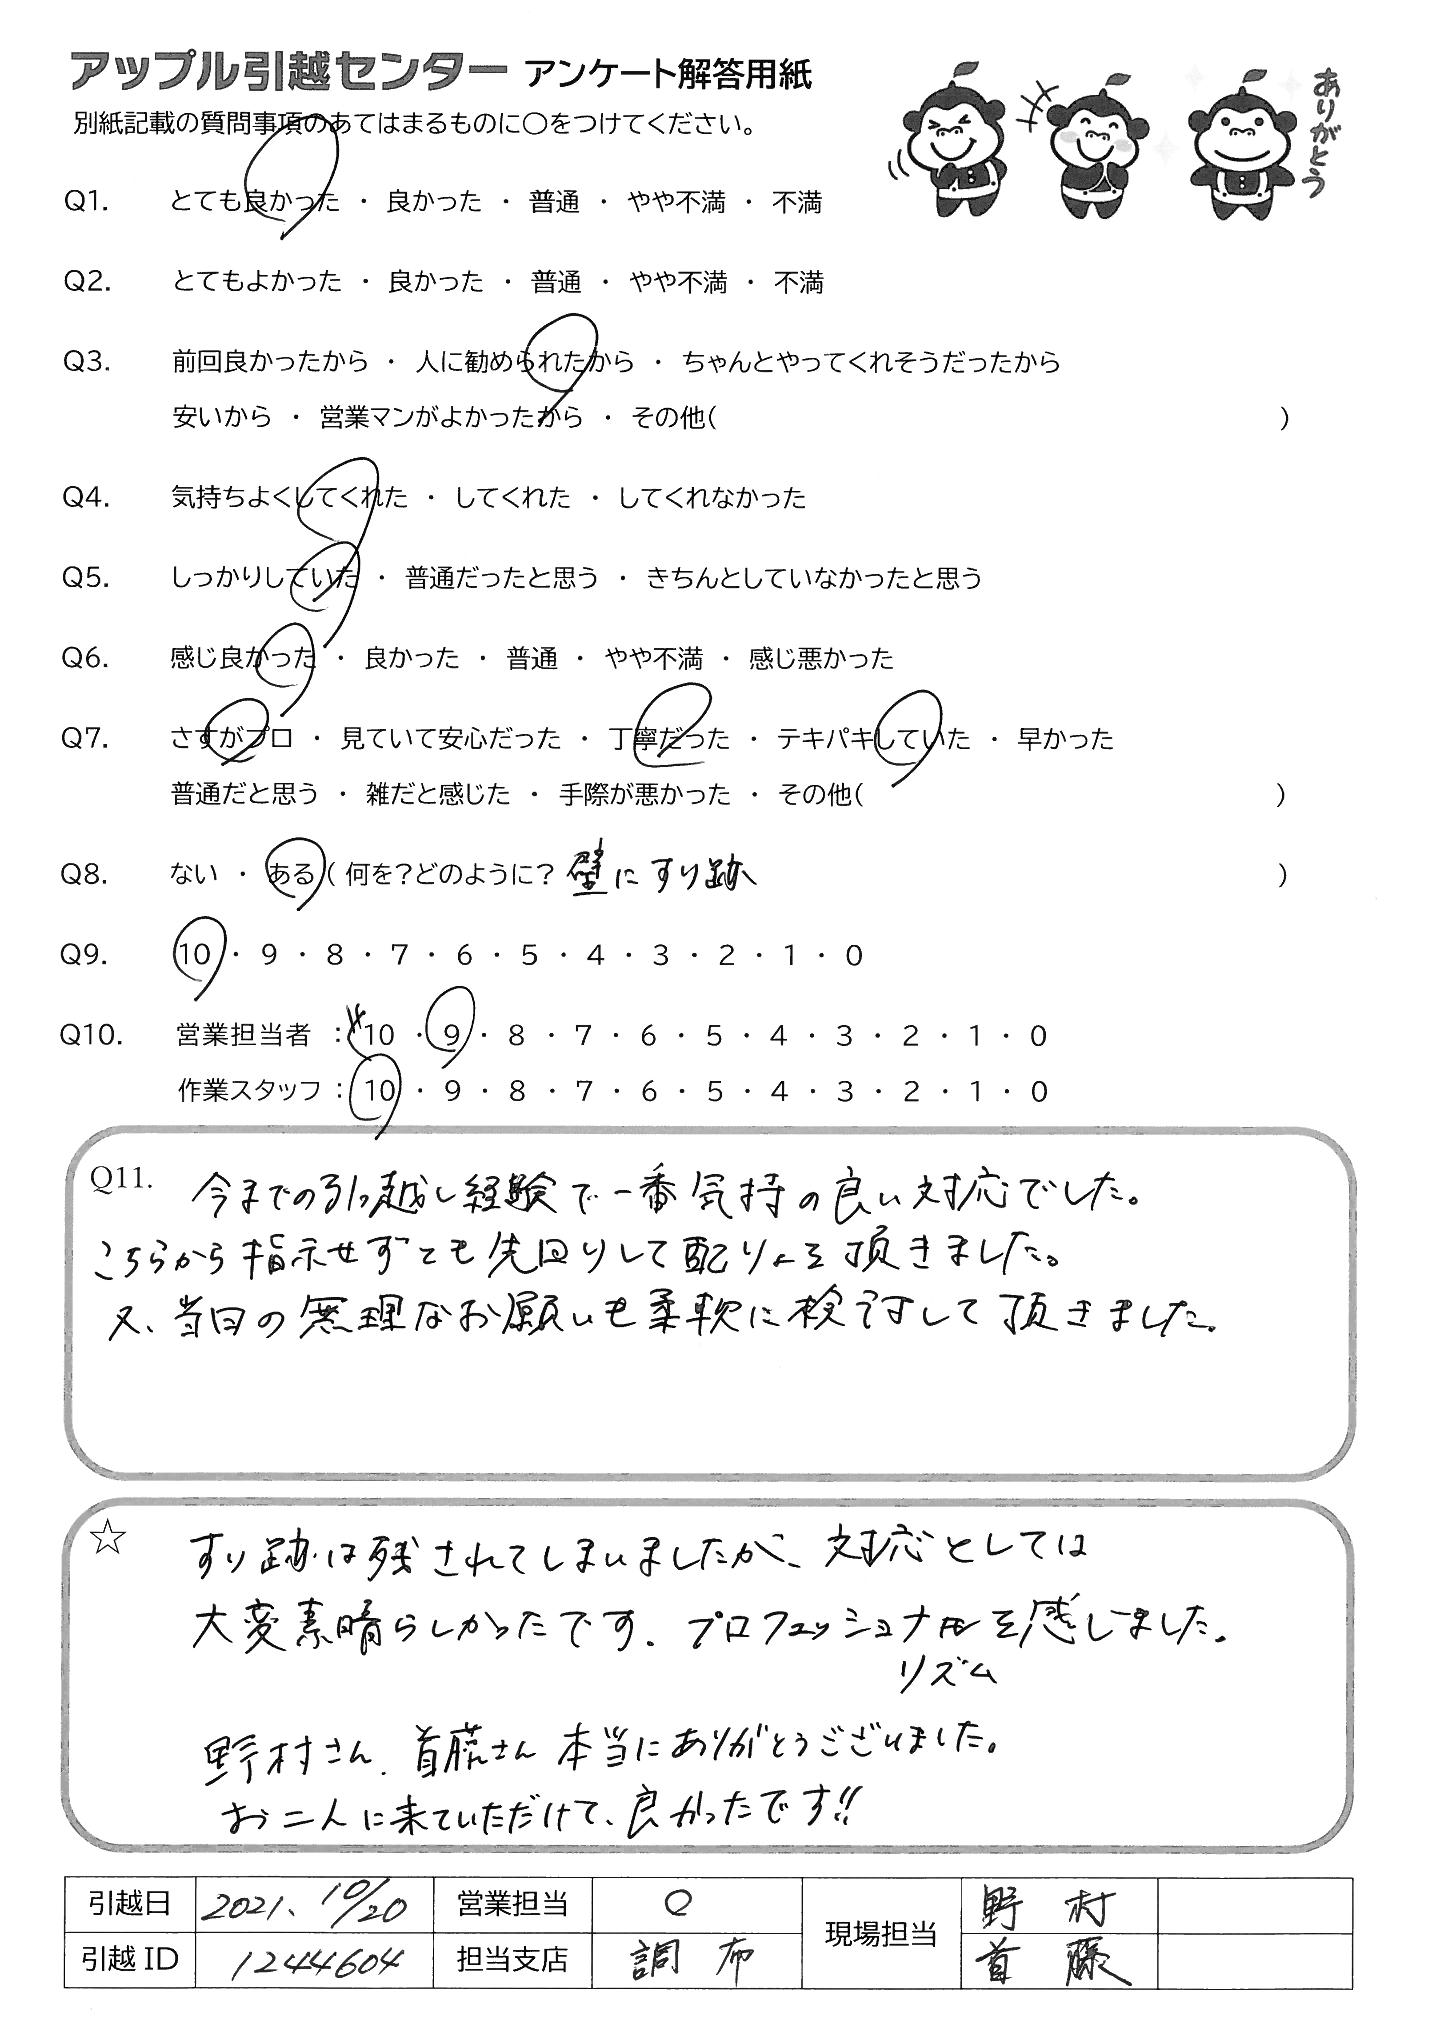 アップル引越センター アンケート解答用紙
別紙記載の質問事項のあてはまるものに○をつけてください。
ありがとう
Q1. とても良かった ・ 良かった ・ 普通 ・ やや不満 ・ 不満
Q2. とてもよかった ・ 良かった ・ 普通 ・ やや不満 ・ 不満
Q3. 前回良かったから ・ 人に勧められたから ・ ちゃんとやってくれそうだったから
安いから ・ 営業マンがよかったから ・ その他( )
Q4. 気持ちよくしてくれた ・ してくれた ・ してくれなかった
Q5. しっかりしていた ・ 普通だったと思う ・ きちんとしていなかったと思う
Q6. 感じ良かった ・ 良かった ・ 普通 ・ やや不満 ・ 感じ悪かった
Q7. さすがプロ ・ 見ていて安心だった ・ 丁寧だった ・ テキパキしていた ・ 早かった
普通だと思う ・ 雑だと感じた ・ 手際が悪かった ・ その他( )
Q8. ない ・ ある ( 何を？どのように？ 壁にすり跡 )
Q9. 10 ・ 9 ・ 8 ・ 7 ・ 6 ・ 5 ・ 4 ・ 3 ・ 2 ・ 1 ・ 0
Q10. 営業担当者 ： 10 ・ 9 ・ 8 ・ 7 ・ 6 ・ 5 ・ 4 ・ 3 ・ 2 ・ 1 ・ 0
作業スタッフ ： 10 ・ 9 ・ 8 ・ 7 ・ 6 ・ 5 ・ 4 ・ 3 ・ 2 ・ 1 ・ 0
Q11. 今までの引っ越し経験で一番気持の良い対応でした。
こちらから指示せずとも先回りして配りょを頂きました。
又、当日の無理なお願いも柔軟に検討して頂きました。
☆ すり跡は残されてしまいましたが、対応としては
大変素晴らしかったです。プロフェッショナルを感じました。
リズム
野村さん、首藤さん本当にありがとうございました。
お二人に来ていただけて、良かったです!!
引越日 2021、10/20 営業担当 Q 現場担当 野村
引越ID 1244604 担当支店 調布 首藤